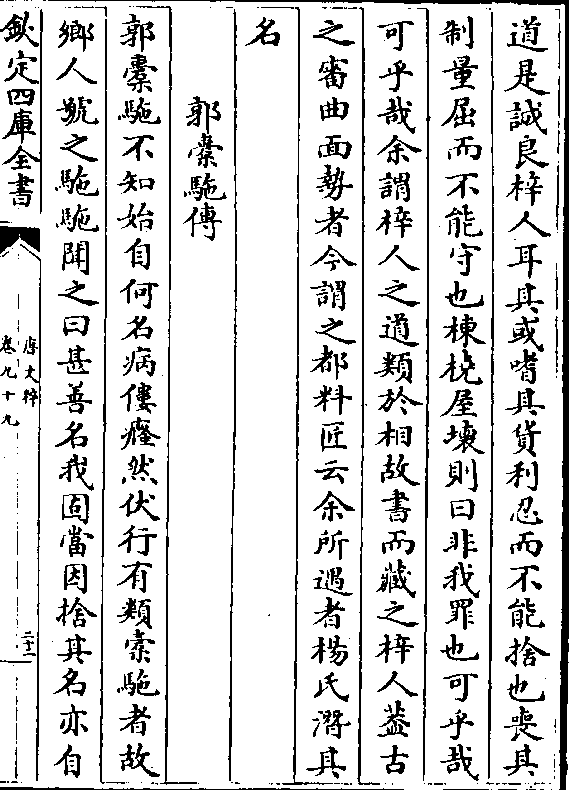 道是誠良梓人耳其或嗜其貨利忍而不能捨也喪其
制量屈而不能守也棟橈屋壞則曰非我罪也可乎哉
可乎哉余謂梓人之道類於相故書而藏之梓人蓋古
之審曲面勢者今謂之都料匠云余所遇者楊氏潛其
名
郭橐駞傳
郭橐駞不知始自何名病僂癃然伏行有類橐駞者故
鄉人號之駞駞聞之曰甚善名我固當因捨其名亦自
欽定四庫全書
唐文粹
卷九十九
二十二